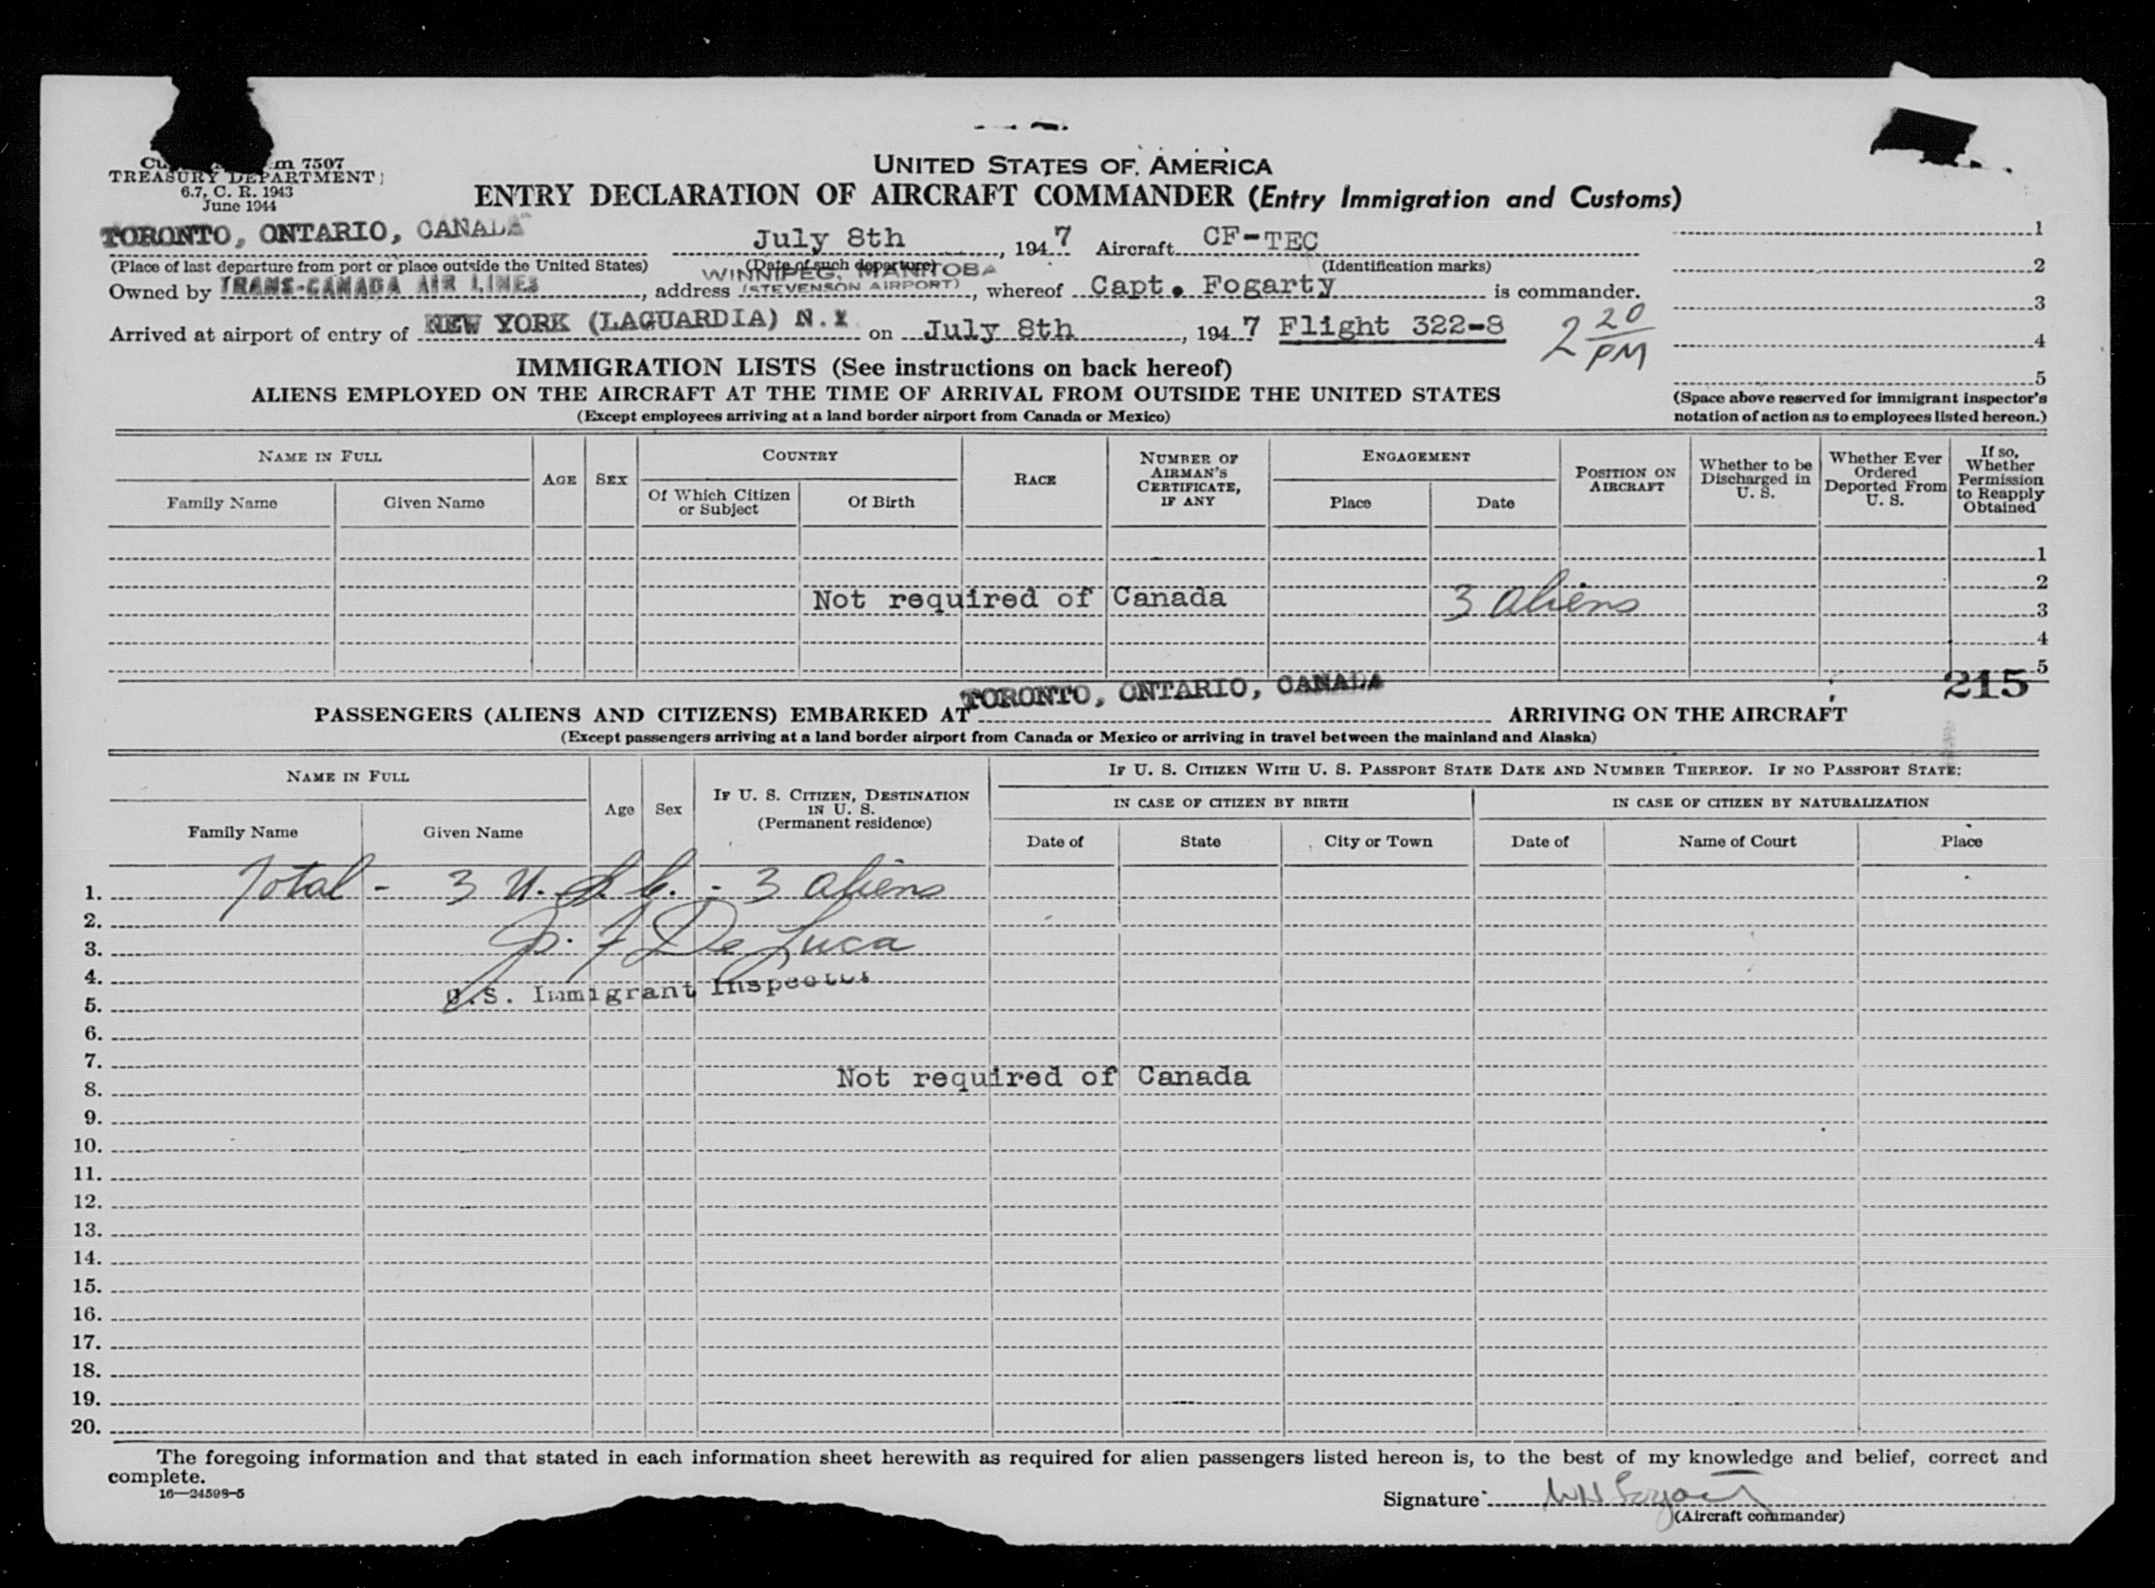 UNITED STATES OF AMERICA
ENTRY DECLARATION OF AIRCRAFT COMMANDER (Entry Immigration and Customs)
m 7507
TREASURY DEPARTMENT
6.7, C. R. 1943
June 1944
TORONTO, ONTARIO, CANADA July 8th, 1947 Aircraft CF-TEC
(Place of last departure from port or place outside the United States) (Date of such departure) (Identification marks)
WINNIPEG, MANITOBA
Owned by TRANS-CANADA AIR LINES, address (STEVENSON AIRPORT), whereof Capt. Fogarty is commander.
Arrived at airport of entry of NEW YORK (LAGUARDIA) N.Y. on July 8th, 1947 Flight 322-8 2 20 PM
1
2
3
4
5
(Space above reserved for immigrant inspector's notation of action as to employees listed hereon.)
IMMIGRATION LISTS (See instructions on back hereof)
ALIENS EMPLOYED ON THE AIRCRAFT AT THE TIME OF ARRIVAL FROM OUTSIDE THE UNITED STATES
(Except employees arriving at a land border airport from Canada or Mexico)
NAME IN FULL
Family Name Given Name
AGE
SEX
COUNTRY
Of Which Citizen or Subject
Of Birth
RACE
NUMBER OF AIRMAN'S CERTIFICATE, IF ANY
ENGAGEMENT
Place Date
POSITION ON AIRCRAFT
Whether to be Discharged in U. S.
Whether Ever Ordered Deported From U. S.
If so, Whether Permission to Reapply Obtained
1
2
Not required of Canada 3 aliens 3
4
5
215
TORONTO, ONTARIO, CANADA
PASSENGERS (ALIENS AND CITIZENS) EMBARKED AT ARRIVING ON THE AIRCRAFT
(Except passengers arriving at a land border airport from Canada or Mexico or arriving in travel between the mainland and Alaska)
NAME IN FULL
Family Name Given Name
Age
Sex
IF U. S. CITIZEN, DESTINATION IN U. S.
(Permanent residence)
IF U. S. CITIZEN WITH U. S. PASSPORT STATE DATE AND NUMBER THEREOF. IF NO PASSPORT STATE:
IN CASE OF CITIZEN BY BIRTH
Date of State City or Town
IN CASE OF CITIZEN BY NATURALIZATION
Date of Name of Court Place
1. Total - 3 U.S.C. - 3 aliens
2.
3. De Luca
4.
U.S. Immigrant Inspector
5.
6.
7.
Not required of Canada
8.
9.
10.
11.
12.
13.
14.
15.
16.
17.
18.
19.
20.
The foregoing information and that stated in each information sheet herewith as required for alien passengers listed hereon is, to the best of my knowledge and belief, correct and
complete.
16—24598-5
Signature
(Aircraft commander)